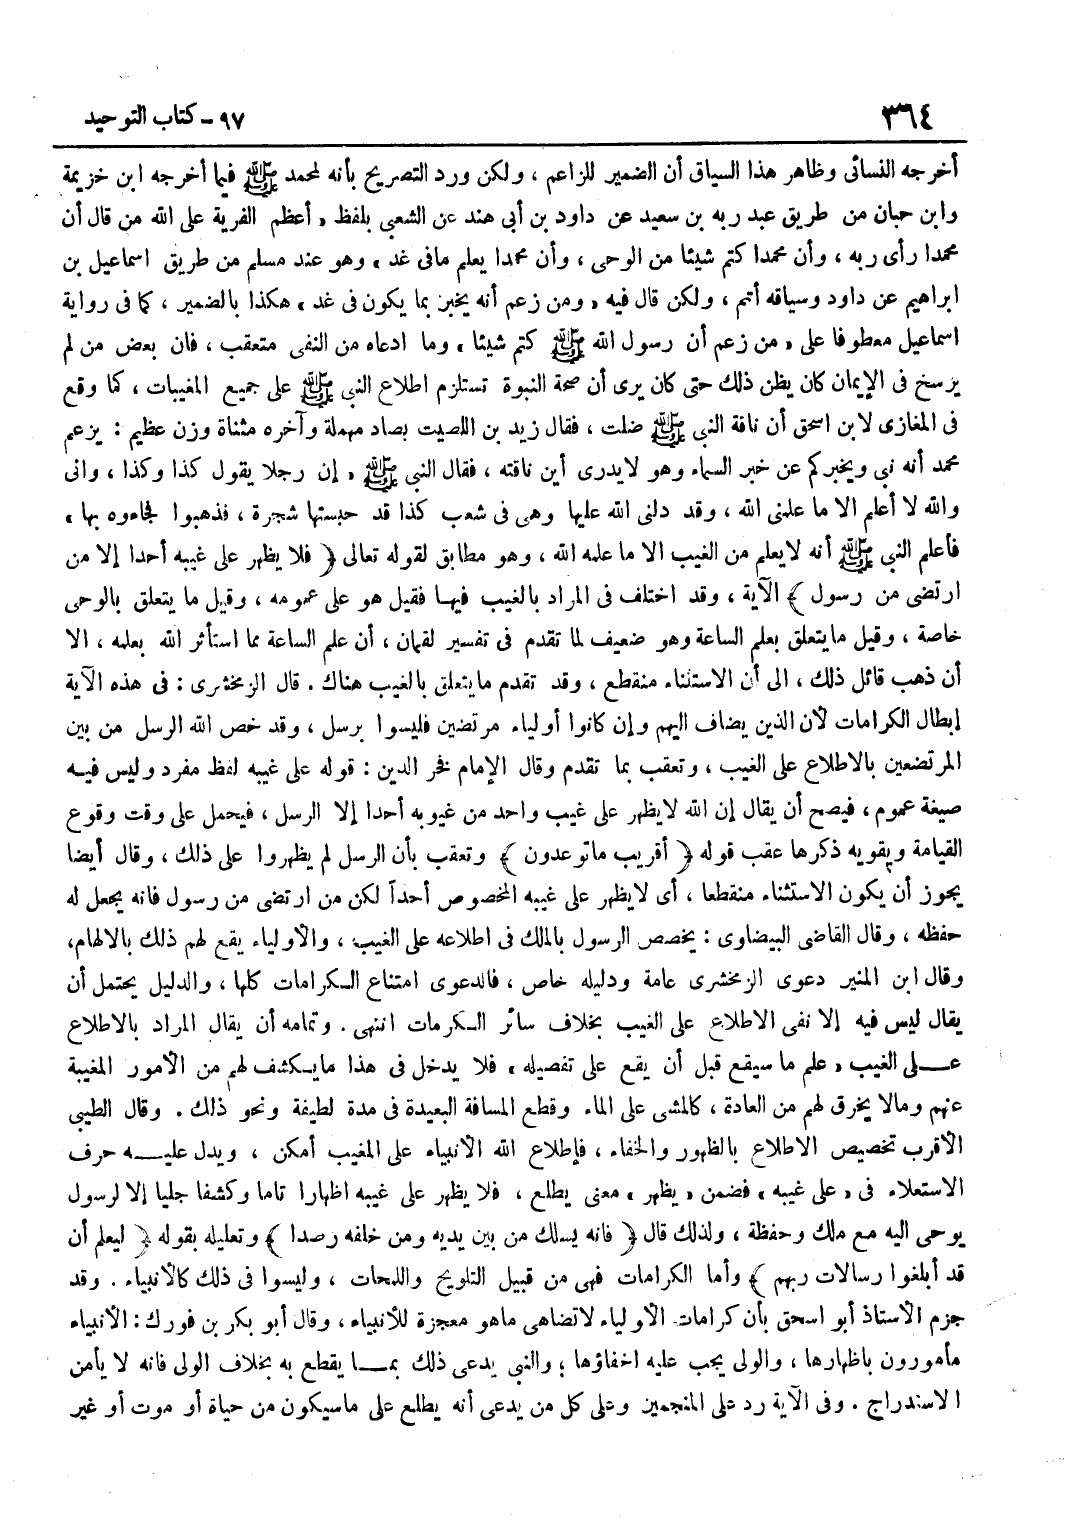 ٣٦٤
٩٧ - كتاب التوحيد
أخرجه النسائى وظاهر هذا السياق أن الضمير للزاعم ، ولكن ورد التصريح بأنه لمحمد ﷺ فيما أخرجه ابن خزيمة
وابن حبان من طريق عبد ربه بن سعيد عن داود بن أبى هند عن الشعبى بلفظ « أعظم الفرية على الله من قال أن
محمدا رأى ربه ، وأن محمدا كتم شيئا من الوحى ، وأن محمدا يعلم مافى غد » وهو عند مسلم من طريق اسماعيل بن
ابراهيم عن داود وسياقه أتم ، ولكن قال فيه « ومن زعم أنه يخبر بما يكون فى غد » هكذا بالضمير ، كما فى رواية
اسماعيل معطوفا على « من زعم أن رسول الله ﷺ كتم شيئا » وما ادعاه من النفى متعقب ، فان بعض من لم
يرسخ فى الإيمان كان يظن ذلك حتى كان يرى أن صحة النبوة تستلزم اطلاع النبى ﷺ على جميع المغيبات ، كما وقع
فى المغازى لابن اسحق أن ناقة النبى ﷺ ضلت ، فقال زيد بن اللصيت بصاد مهملة وآخره مثناة وزن عظيم : يزعم
محمد أنه نبى ويخبركم عن خبر السماء وهو لايدرى أين ناقته ، فقال النبى ﷺ « إن رجلا يقول كذا وكذا ، وانى
والله لا أعلم الا ما علمنى الله ، وقد دلنى الله عليها وهى فى شعب كذا قد حبستها شجرة ، فذهبوا فجاءوه بها »
فأعلم النبى ﷺ أنه لايعلم من الغيب الا ما علمه الله ، وهو مطابق لقوله تعالى ﴿ فلا يظهر على غيبه أحدا إلا من
ارتضى من رسول ﴾ الآية ، وقد اختلف فى المراد بالغيب فيها فقيل هو على عمومه ، وقيل ما يتعلق بالوحى
خاصة ، وقيل مايتعلق بعلم الساعة وهو ضعيف لما تقدم فى تفسير لقمان ، أن علم الساعة مما استأثر الله بعلمه ، الا
أن ذهب قائل ذلك ، الى أن الاستثناء منقطع ، وقد تقدم مايتعلق بالغيب هناك . قال الزمخشرى : فى هذه الآية
إبطال الكرامات لأن الذين يضاف اليهم وإن كانوا أولياء مرتضين فليسوا برسل ، وقد خص الله الرسل من بين
المرتضعين بالاطلاع على الغيب ، وتعقب بما تقدم وقال الإمام فخر الدين : قوله على غيبه لفظ مفرد وليس فيه
صيغة عموم ، فيصح أن يقال إن الله لايظهر على غيب واحد من غيوبه أحدا إلا الرسل ، فيحمل على وقت وقوع
القيامة ويقويه ذكرها عقب قوله ﴿ أقريب ماتوعدون ﴾ وتعقب بأن الرسل لم يظهروا على ذلك ، وقال أيضا
يجوز أن يكون الاستثناء منقطعا ، أى لايظهر على غيبه المخصوص أحداً لكن من ارتضى من رسول فانه يجعل له
حفظه ، وقال القاضى البيضاوى : يخصص الرسول بالملك فى اطلاعه على الغيب ، والأولياء يقع لهم ذلك بالالهام،
وقال ابن المنير دعوى الزمخشرى عامة ودليله خاص ، فالدعوى امتناع الكرامات كلها ، والدليل يحتمل أن
يقال ليس فيه إلا نفى الاطلاع على الغيب بخلاف سائر الكرمات انتهى . وتمامه أن يقال المراد بالاطلاع
على الغيب « علم ما سيقع قبل أن يقع على تفصيله » فلا يدخل فى هذا مايكشف لهم من الأمور المغيبة
عنهم ومالا يخرق لهم من العادة ، كالمشى على الماء وقطع المسافة البعيدة فى مدة لطيفة ونحو ذلك . وقال الطيبى
الأقرب تخصيص الاطلاع بالظهور والخفاء ، فإطلاع الله الأنبياء على المغيب أمكن ، ويدل عليه حرف
الاستعلاء فى « على غيبه » فضمن « يظهر » معنى يطلع ، فلا يظهر على غيبه اظهارا تاما وكشفا جليا إلا لرسول
يوحى اليه مع ملك وحفظة ، ولذلك قال ﴿ فانه يسلك من بين يديه ومن خلفه رصدا ﴾ وتعليله بقوله ﴿ ليعلم أن
قد أبلغوا رسالات ربهم ﴾ وأما الكرامات فهى من قبيل التلويح واللمحات ، وليسوا فى ذلك كالأنبياء . وقد
جزم الأستاذ أبو اسحق بأن كرامات الأولياء لاتضاهى ماهو معجزة للأنبياء ، وقال أبو بكر بن فورك : الأنبياء
مأمورون باظهارها ، والولى يجب عليه اخفاؤها ؛ والنبى يدعى ذلك بما يقطع به بخلاف الولى فانه لا يأمن
الاستدراج . وفى الآية رد على المنجمين وعلى كل من يدعى أنه يطلع على ماسيكون من حياة أو موت أو غير